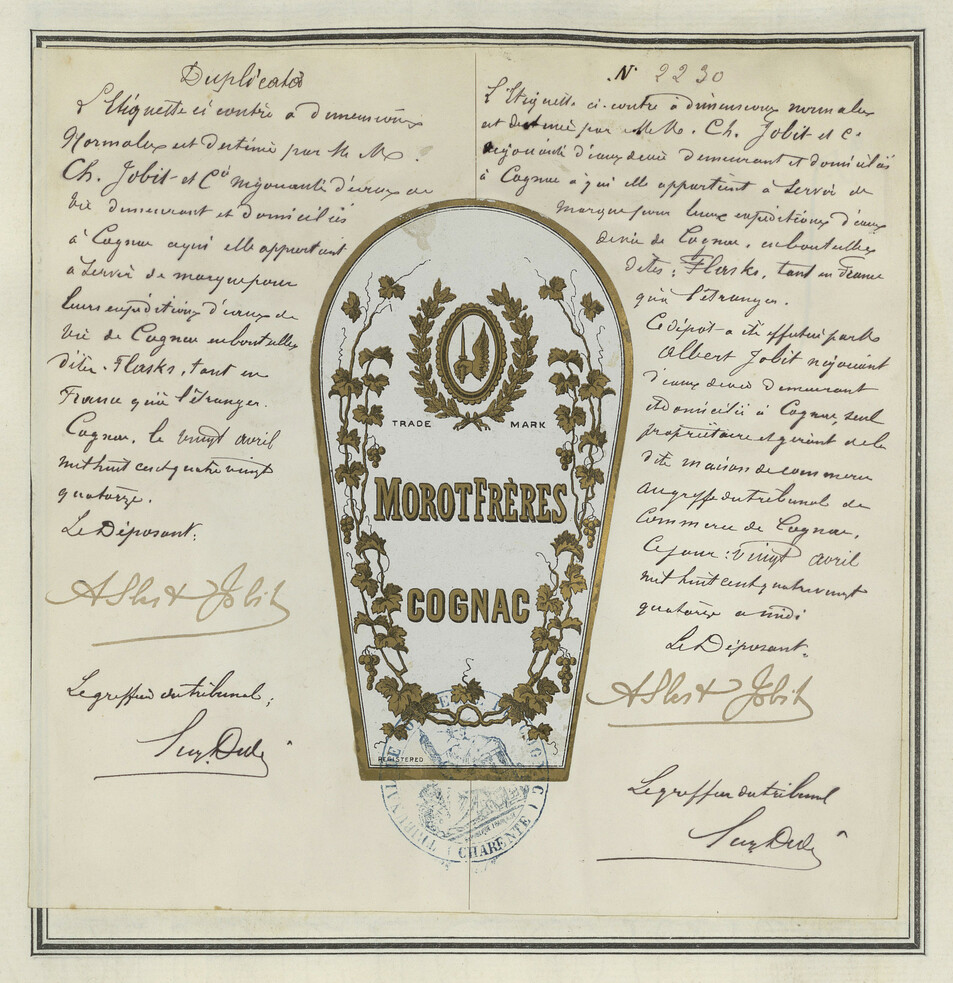 Duplicata
L'Etiquette ci contre à dimensions
Normales est destinée par M. M.
Ch. Jobit et Cie négociants d'eaux de
vie demeurant et domiciliés
à Cognac à qui elle appartient
à servir de marque pour
leurs expéditions d'eaux de
vie de Cognac en bouteilles
dites: Flasks, tant en
France qu'à l'étranger.
Cognac, le vingt avril
mil huit cent quatre vingt
quatorze.
Le Déposant:
Albert Jobit
Le greffier du tribunal:
N° 2230
L'Etiquette ci-contre à dimensions normales
est destinée par M. M. Ch. Jobit et Cie
négociants d'eaux devie demeurant et domiciliés
à Cognac à qui elle appartient à servir de
marque pour leurs expéditions d'eaux
devie de Cognac, en bouteilles
dites: Flasks, tant en France
qu'à l'étranger.
Ce dépôt a été effectué par M.
Albert Jobit négociant
d'eaux devie demeurant
et domicilié à Cognac, seul
propriétaire et gérant de la
dite maison de commerce
au greffe du tribunal de
Commerce de Cognac,
Ce jour: vingt avril
mil huit cent quatre vingt
quatorze à midi
Le Déposant.
Albert Jobit
Le greffier du tribunal
TRADE MARK
MOROT FRÈRES
COGNAC
REGISTERED
CHARENTE